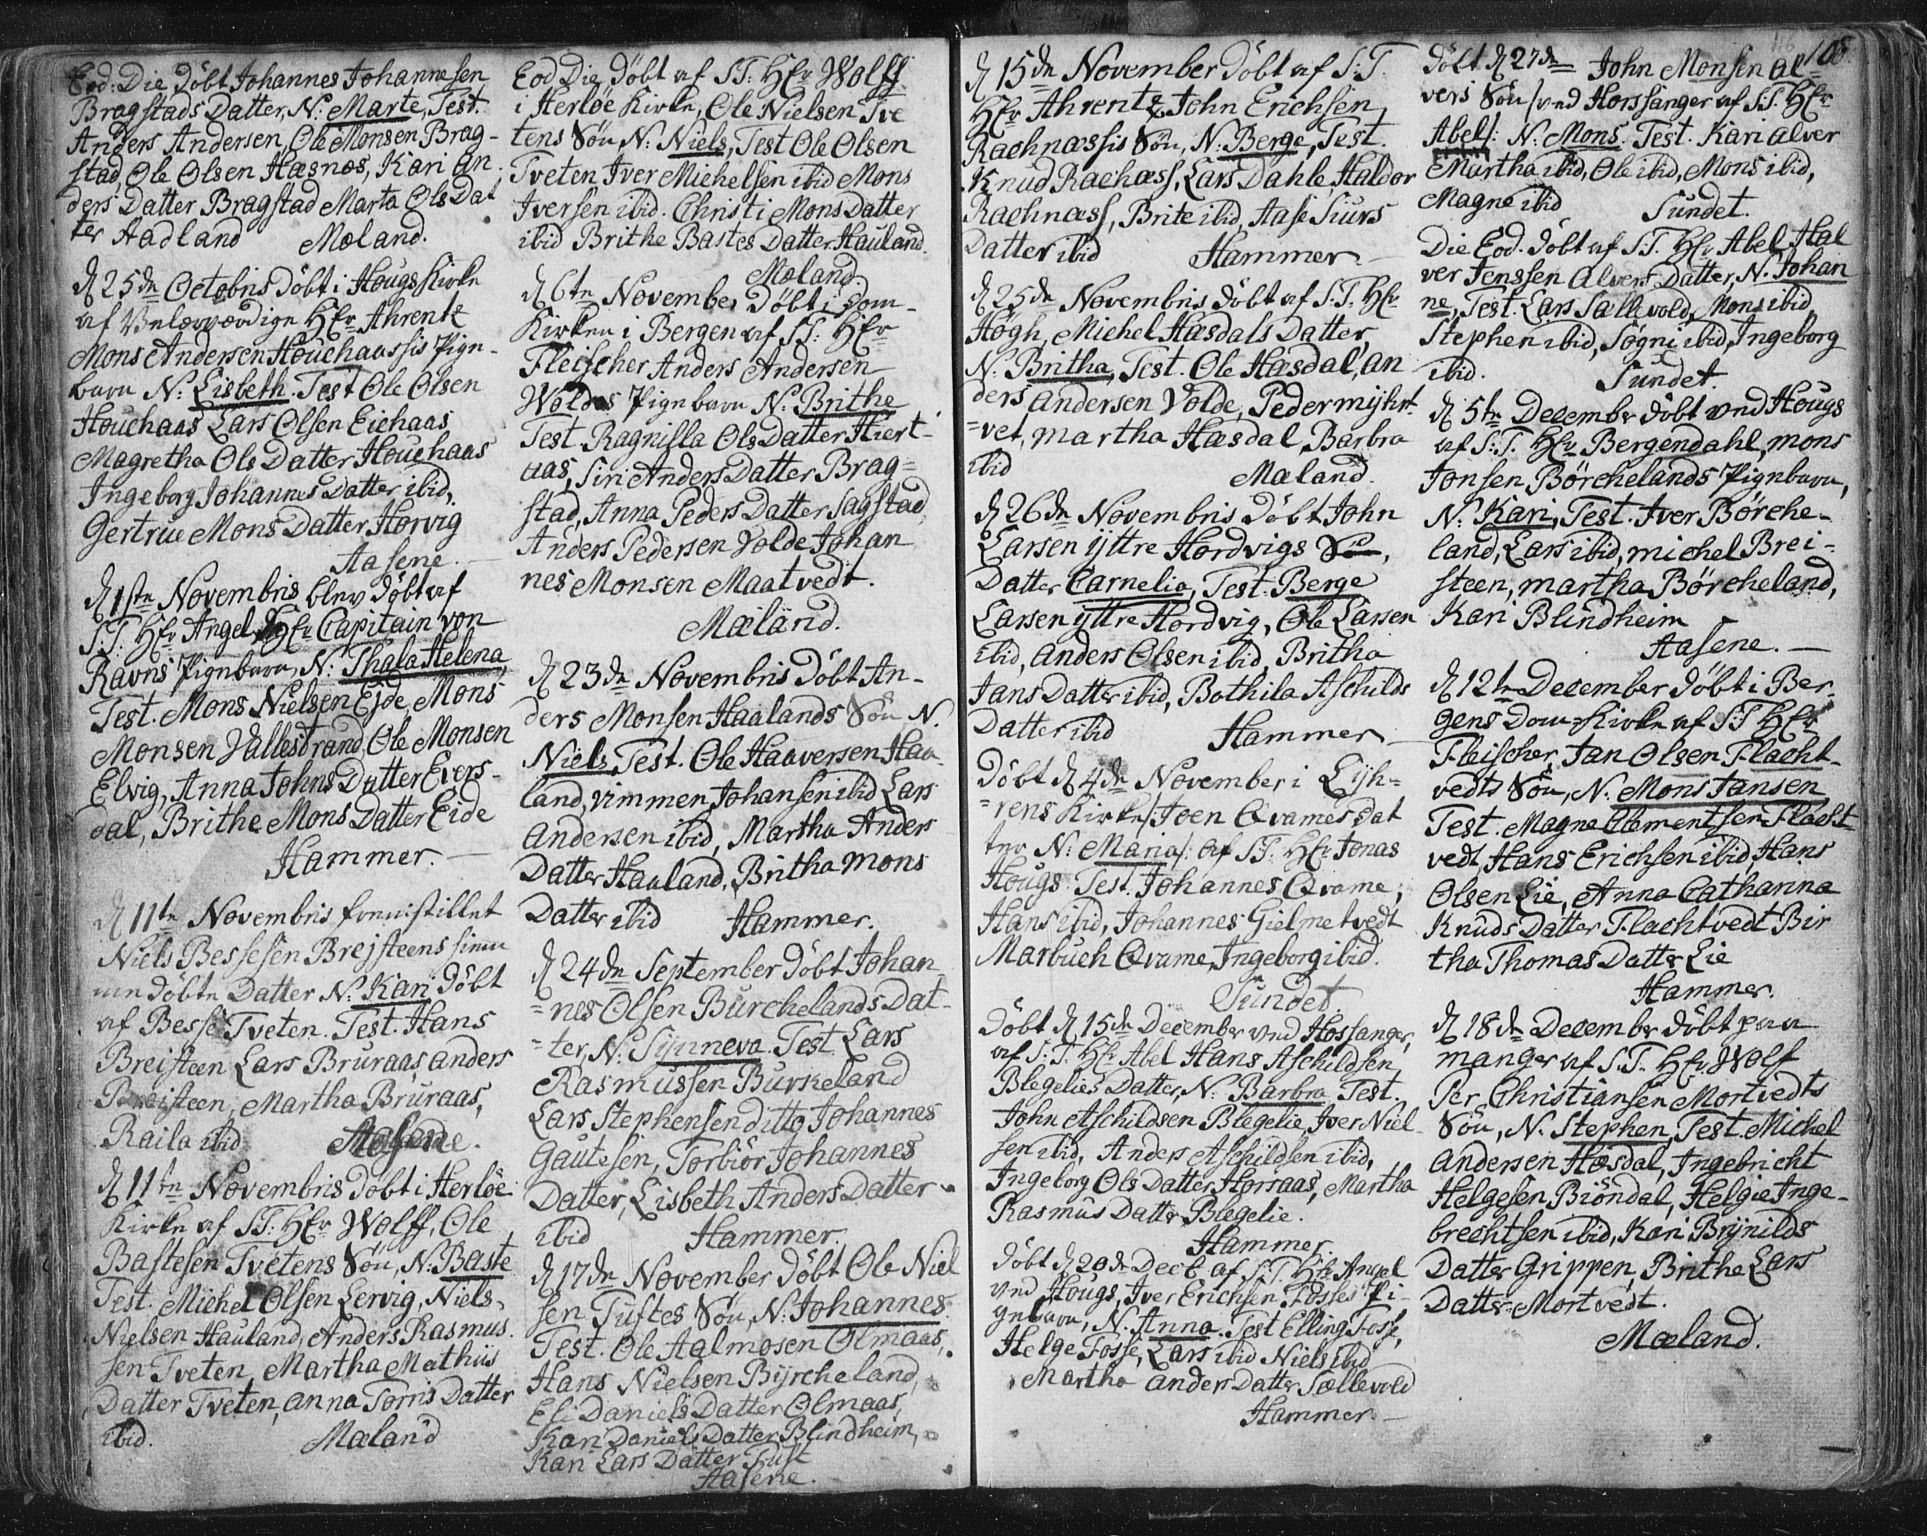 Eod: Die döbt Johannes Johannesen
Bragstads Datter, N: Marte, Test.
Anders Andersen, Ole Monsen Brag-
stad, Ole Olsen Hæsnæs, Kari An
ders Datter Bragstad Marta Ols Dat
ter Aadland Mæland.
d 25de Octobris döbt i Hougs Kirke
af Velærværdige HEr Ahrentz
Mons Andersen Houchaassis Pign-
barn N: Lisbeth. Test Ole Olsen
Houchaas Lars Olsen Eichaas
Magretha Ols Datter Houchaas
Ingeborg Johannes Datter ibid,
Gertrue Mons Datter Horvig
Aasene.
d 1ste Novembris blev döbt af
S.T. HEr Angel HEr Capitain von
Ravns Pignbarn, N: Thala Helena,
Test. Mons Nielsen Ejde, Mons
Monsen Vallestrand, Ole Monsen
Elvig, Anna Johns Datter Evers-
dal, Brithe Mons Datter Eide
Hammer.
d 11te Novembris fremstillet
Niels Bessesen Brejsteens hiem
me döbte Datter N: Kari döbt
af Besse Tveten. Test. Hans
Breisteen Lars Bruraas, anders
Breisteen, Martha Bruraas,
Raila ibid Aasene.
d 11te Novembris döbt i Herlöe
Kirke af S.T. HEr Wolff, Ole
Bastesen Tvetens Sön, N: Baste
Test. Michel Olsen Lervig, Niels
Nielsen Hauland, Anders Rasmus
sen Tveten, Martha Mathiis
Datter Tveten, anna Torris Datter
ibid. Mæland
Eod Die döbt af S.T: HEr Wolff
i Herlöe Kirke, Ole Nielsen Tve
tens Sön N: Niels, Test Ole Olsen
Tveten Iver Michelsen ibid Mons
Iversen ibid. Christi Mons Datter
ibid Brithe Bastes Datter Hauland.
Mæland
d 6te November döbt i Dom-
Kirken i Bergen af S.T: HEr
Fleischer Anders Andersen
Woldes Pignbarn N: Brithe
Test. Ragnilla Ols Datter Hiert-
aas, Siri Anders Datter Brag=
stad, Anna Peders Datter Sagstad,
Anders Pedersen Volde Johan
nes Monsen Maatvedt.
Mæland.
d 23de Novembris Döbt An-
ders Monsen Haalands Sön N.
Niels, Test. Ole Haaversen Haa-
land, Vimmen Johansen ibid Lars
Andersen ibid, Martha Anders
Datter Haaland, Britha Mons
Datter ibid Hammer.
d 24de September döbt Johan-
=nes Olsen Burchelands Dat-
=ter, N: Synneva. Test Lars
Rasmussen Burkeland
Lars Stephensen ditto Johannes
Gautesen, Torbiör Johannes
Datter, Lisbeth Anders Datter
ibid Hammer.
d 17de November döbt Ole Niel
sen Tuftes Sön, N: Johannes.
Test. Ole Aalmosen Olmaas,
Hans Nielsen Byrcheland,
Eli Daniels Datter Olmaas,
Kari Daniels Datter Blindheim,
Kari Lars Datter Tuft
Aasene.
d 15de November döbt af S.T.
HEr Ahrentz, John Erichsen
Rachnæssis Sön, N: Berge, Test.
Knud Rachæss, Lars Dahle, Haldor
Rachnæss, Brite ibid, Aase Siurs
Datter ibid Hammer
d 25de Novembris döbt af S.T. HEr
Högh, Michel Hæsdals Datter,
N: Britha, Test. Ole Hæsdal, An
ders Andersen Volde, Peder mijhrt-
=vet, martha Hæsdal, Barbra
ibid Mæland.
d 26de Novembris Döbt John
Larsen yttre Hordvigs Sön,
Datter Carnelia, Test. Berge
Larsen yttre Hordvig, Ole Larsen
ibid, Anders Olsen ibid, Britha
Jans Datter ibid, Bothila Aschilds
Datter ibid Hammer
Döbt d 4de November i Lijh-
=rens Kirke /: Joen Qvames dat
ter N: Maria :/ af S.T: HEr Jonas
Hougs. Test. Johannes Qvame,
Hans ibid, Johannes Gielmetvedt
Marbuch Qvame, Ingeborg ibid.
Sundet
Döbt d 15de December vnd Hossanger,
af S.T. HEr Abel Hans Aschildsen
Blegelies Datter, N: Barbra, Test.
John Aschildsen Blegelie, Iver Niel-
sen ibid, Anders Aschildsen ibid,
Ingeborg Ols Datter Horsaas, Martha
Rasmus Datter Blegelie.
Hammer
Döbt d 20de Decb. af S.T. HEr Angel
vnd Hougs, Iver Erichsen Fosses Pi-
gnbarn, N: Anna. Test Elling Fosse,
Helge Fosse, Lars ibid Niels ibid
Martha Anders Datter Sællevold
Hammer
108.
döbt d 27de John Monsen Al-
vers Sön /vnd Horssanger af S.T. HEr
Abel/: N: Mons. Test. Kari Alver
Martha ibid, Ole ibid, Mons ibid,
Magne ibid Sundet.
Die Eod. döbt af S.T. HEr Abel Hal
ver Jenssen Alvers Datter, N: Johan
ne, Test. Lars Sællevold, Mons ibid
Stephen ibid, Sögni ibid, Ingeborg
ibid. Sundet.
d 5te December döbt vnd Hougs
af S.T. HEr Bergendahl, Mons
Jonsen Börchelands Pignbarn,
N: Kari, Test. Iver Börche-
land, Lars ibid, michel Brei-
steen, martha Börcheland,
Kari Blindheim
Aasene.
d 12te December döbt i Ber-
gens Dom-Kirke af S.T HEr
Fleischer, Jan Olsen Flacht-
vedts Sön, N. Mons Jansen
Test. Magne Clementsen Flacht-
vedt Hans Erichsen ibid, Hans
Olsen Lie, Anna Catharina
Knuds Datter Flachtvedt Bir
tha Thomas Datter Lie
Hammer.
d 18de December döbt paa
manger af S.T. HEr Wolf
Per Christiansen Mortvedts
Sön, N. Stephen, Test. Michel
Andersen Hæsdal, Ingebricht
Helgesen Biöndal, Helgie Inge-
brechtsen ibid, Kari Brijnilds
Datter Grippen, Brithe Lars
Datter Mortvedt.
Mæland.